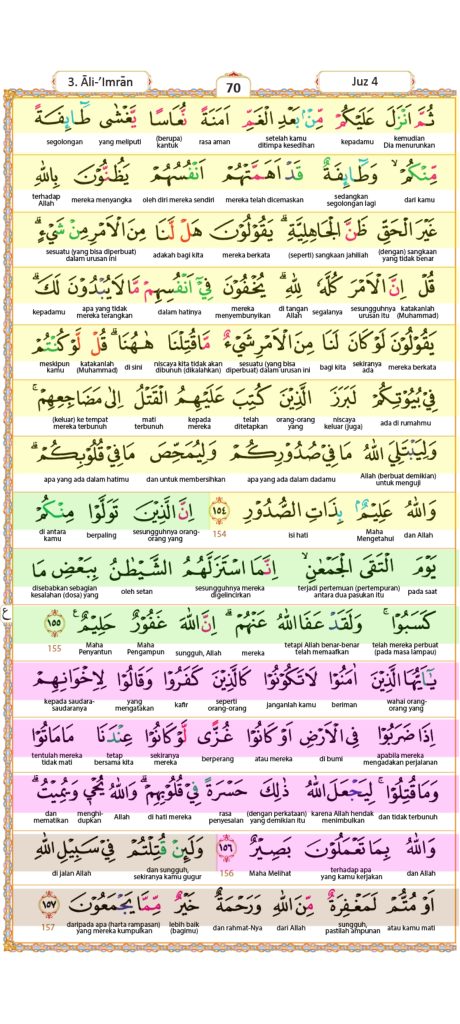 3. Āli-'Imrān 70 Juz 4
ثُمَّ اَنْزَلَ عَلَيْكُمْ مِّنْۢ بَعْدِ الْغَمِّ اَمَنَةً نُّعَاسًا يَّغْشٰى طَاۤىِٕفَةً
kemudian Dia menurunkan kepadamu setelah kamu ditimpa kesedihan rasa aman (berupa) kantuk yang meliputi segolongan
مِّنْكُمْ ۙ وَطَاۤىِٕفَةٌ قَدْ اَهَمَّتْهُمْ اَنْفُسُهُمْ يَظُنُّوْنَ بِاللّٰهِ
dari kamu sedangkan segolongan lagi mereka telah dicemaskan oleh diri mereka sendiri mereka menyangka terhadap Allah
غَيْرَ الْحَقِّ ظَنَّ الْجَاهِلِيَّةِ ۗ يَقُوْلُوْنَ هَلْ لَّنَا مِنَ الْاَمْرِ مِنْ شَيْءٍ ۗ
(dengan) sangkaan yang tidak benar (seperti) sangkaan Jahiliah mereka berkata adakah bagi kita sesuatu (yang bisa diperbuat) dalam urusan ini
قُلْ اِنَّ الْاَمْرَ كُلَّهٗ لِلّٰهِ ۗ يُخْفُوْنَ فِيْٓ اَنْفُسِهِمْ مَّا لَا يُبْدُوْنَ لَكَ ۗ
katakanlah (Muhammad) sesungguhnya urusan itu segalanya di tangan Allah mereka menyembunyikan dalam hatinya apa yang tidak mereka terangkan kepadamu
يَقُوْلُوْنَ لَوْ كَانَ لَنَا مِنَ الْاَمْرِ شَيْءٌ مَّا قُتِلْنَا هٰهُنَا ۗ قُلْ لَّوْ كُنْتُمْ
mereka berkata sekiranya ada bagi kita sesuatu (yang bisa diperbuat) dalam urusan ini niscaya kita tidak akan dibunuh (dikalahkan) di sini katakanlah (Muhammad) meskipun kamu
فِيْ بُيُوْتِكُمْ لَبَرَزَ الَّذِيْنَ كُتِبَ عَلَيْهِمُ الْقَتْلُ اِلٰى مَضَاجِعِهِمْ ۚ
ada di rumahmu niscaya keluar (juga) orang-orang yang telah ditetapkan kepada mereka mati terbunuh (keluar) ke tempat mereka terbunuh
وَلِيَبْتَلِيَ اللّٰهُ مَا فِيْ صُدُوْرِكُمْ وَلِيُمَحِّصَ مَا فِيْ قُلُوْبِكُمْ ۗ
Allah (berbuat demikian) untuk menguji apa yang ada dalam dadamu dan untuk membersihkan apa yang ada dalam hatimu
وَاللّٰهُ عَلِيْمٌۢ بِذَاتِ الصُّدُوْرِ ١٥٤ اِنَّ الَّذِيْنَ تَوَلَّوْا مِنْكُمْ
dan Allah Maha Mengetahui isi hati 154 sesungguhnya orang-orang yang berpaling di antara kamu
يَوْمَ الْتَقَى الْجَمْعٰنِ ۙ اِنَّمَا اسْتَزَلَّهُمُ الشَّيْطٰنُ بِبَعْضِ مَا
pada saat terjadi pertemuan (pertempuran) antara dua pasukan itu sesungguhnya mereka digelincirkan oleh setan disebabkan sebagian kesalahan (dosa) yang
كَسَبُوْا ۚ وَلَقَدْ عَفَا اللّٰهُ عَنْهُمْ ۗ اِنَّ اللّٰهَ غَفُوْرٌ حَلِيْمٌ ࣖ ١٥٥ ع
telah mereka perbuat (pada masa lampau) tetapi Allah benar-benar telah memaafkan mereka sungguh, Allah Maha Pengampun Maha Penyantun 155
يٰٓاَيُّهَا الَّذِيْنَ اٰمَنُوْا لَا تَكُوْنُوْا كَالَّذِيْنَ كَفَرُوْا وَقَالُوْا لِاِخْوَانِهِمْ
wahai orang-orang yang beriman janganlah kamu seperti orang-orang kafir yang mengatakan kepada saudara-saudaranya
اِذَا ضَرَبُوْا فِى الْاَرْضِ اَوْ كَانُوْا غُزًّى لَّوْ كَانُوْا عِنْدَنَا مَا مَاتُوْا
apabila mereka mengadakan perjalanan di bumi atau mereka berperang sekiranya mereka tetap bersama kita tentulah mereka tidak mati
وَمَا قُتِلُوْا ۚ لِيَجْعَلَ اللّٰهُ ذٰلِكَ حَسْرَةً فِيْ قُلُوْبِهِمْ ۗ وَاللّٰهُ يُحْيٖ وَيُمِيْتُ ۗ
dan tidak terbunuh karena Allah hendak menimbulkan (dengan perkataan) yang demikian itu rasa penyesalan di hati mereka Allah menghidupkan dan mematikan
وَاللّٰهُ بِمَا تَعْمَلُوْنَ بَصِيْرٌ ١٥٦ وَلَىِٕنْ قُتِلْتُمْ فِيْ سَبِيْلِ اللّٰهِ
dan Allah terhadap apa yang kamu kerjakan Maha Melihat 156 dan sungguh, sekiranya kamu gugur di jalan Allah
اَوْ مُتُّمْ لَمَغْفِرَةٌ مِّنَ اللّٰهِ وَرَحْمَةٌ خَيْرٌ مِّمَّا يَجْمَعُوْنَ ١٥٧
atau kamu mati sungguh, pastilah ampunan dari Allah dan rahmat-Nya lebih baik (bagimu) daripada apa (harta rampasan) yang mereka kumpulkan 157